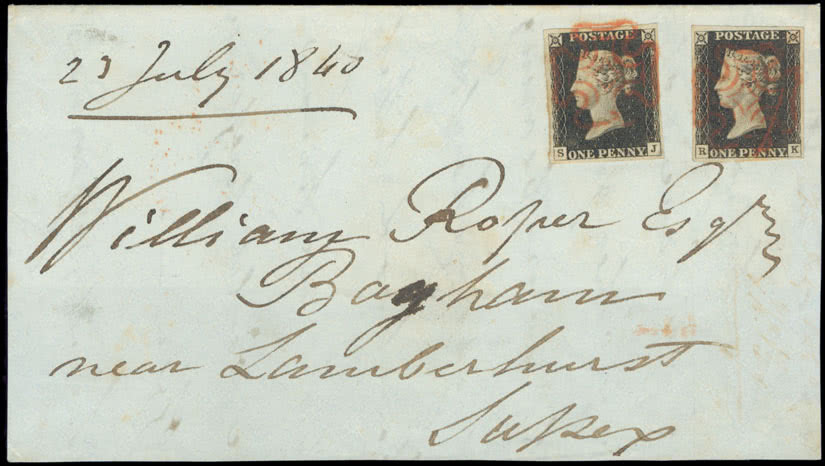 23 July 1840
POSTAGE
S J
ONE PENNY
POSTAGE
R K
ONE PENNY
William Roper Esqre
Bayham
near Lamberhurst
Sussex